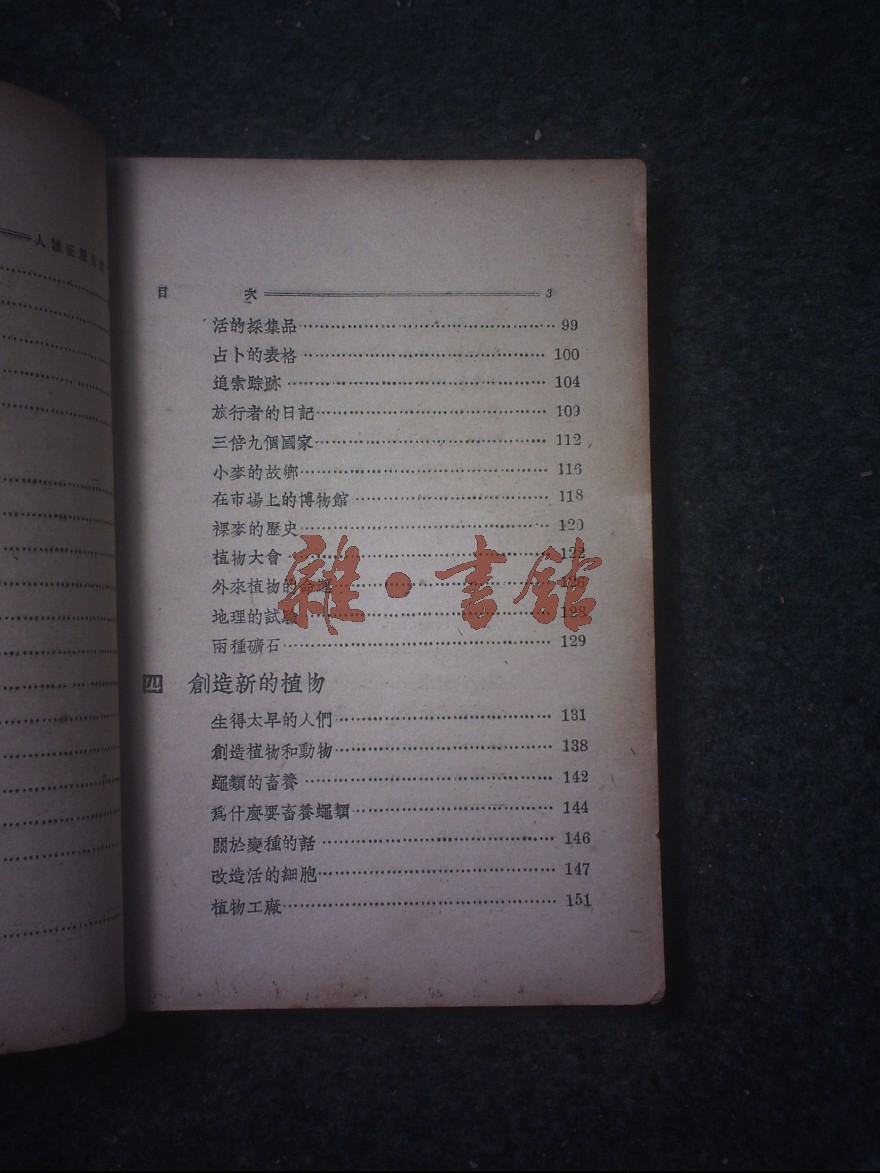 人類征服自然
目 次 3
活的採集品 99
占卜的表格 100
追索踪跡 104
旅行者的日記 109
三倍九個國家 112
小麥的故鄉 116
在市場上的博物館 118
裸麥的歷史 120
植物大會 122
外來植物的命運 126
地理的試驗 128
兩種礦石 129
雜·書館
四 創造新的植物
生得太早的人們 131
創造植物和動物 138
蠅類的畜養 142
爲什麼要畜養蠅類 144
關於變種的話 146
改造活的細胞 147
植物工廠 151